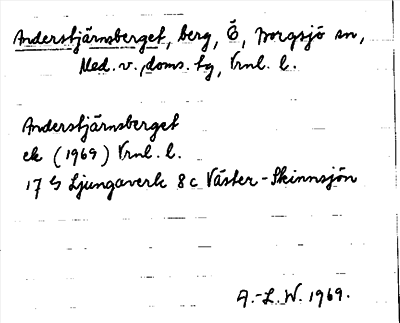 Anderstjärnsberget, berg, Ö, Borgsjö sn,
Med. v., doms. tg, Vrnl. l.
Anderstjärnsberget
ek (1969) Vrnl. l.
17 G Ljungaverk 8 c Väster-Skinnsjön
A.-L. W. 1969.